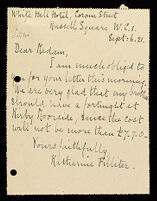 White Hall Hotel, Coram Street
Russell Square W.C.1.
Sept: 6. 21.
Dear Madam,
I am much obliged to
you for your letter this morning.
We are very glad that my
should have a fortnight at
Kirby Moorside, since the cost
will not be more than £7.7.0
Yours faithfully,
Katherine